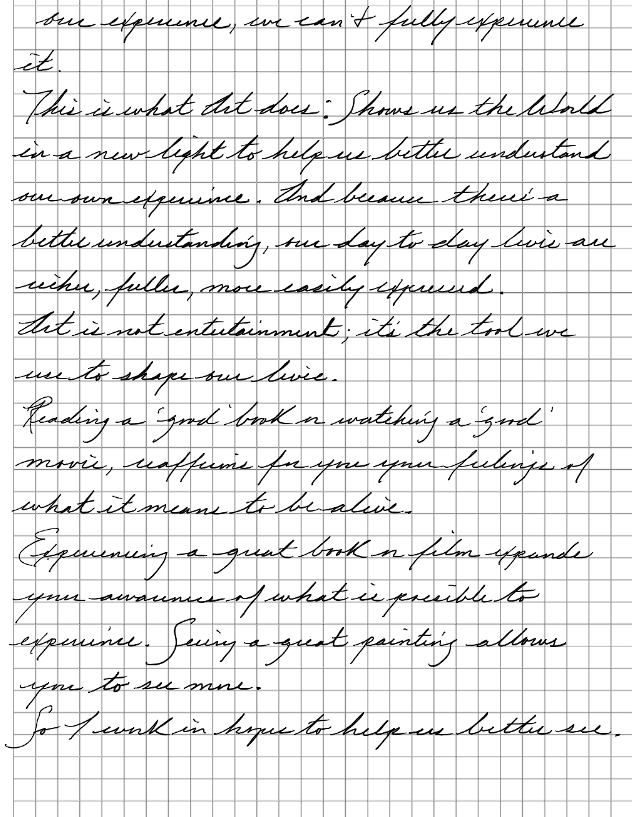 our experience, we can't fully experience
it.
This is what Art does: Shows us the World
in a new light to help us better understand
our own experience. And because there's a
better understanding, our day to day lives are
richer, fuller, more easily expressed.
Art is not entertainment; it's the tool we
use to shape our lives.
Reading a 'good' book or watching a 'good'
movie, reaffirms for you your feelings of
what it means to be alive.
Experiencing a great book or film expands
your awareness of what is possible to
experience. Seeing a great painting allows
you to see more.
So I work in hopes to help us better see.